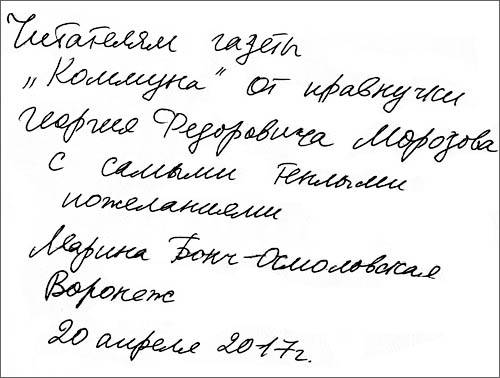 Читателям газеты
„Коммуна" от правнучки
Георгия Федоровича Морозова
с самыми теплыми
пожеланиями
Марина Бонч-Осмоловская
Воронеж
20 апреля 2017г.